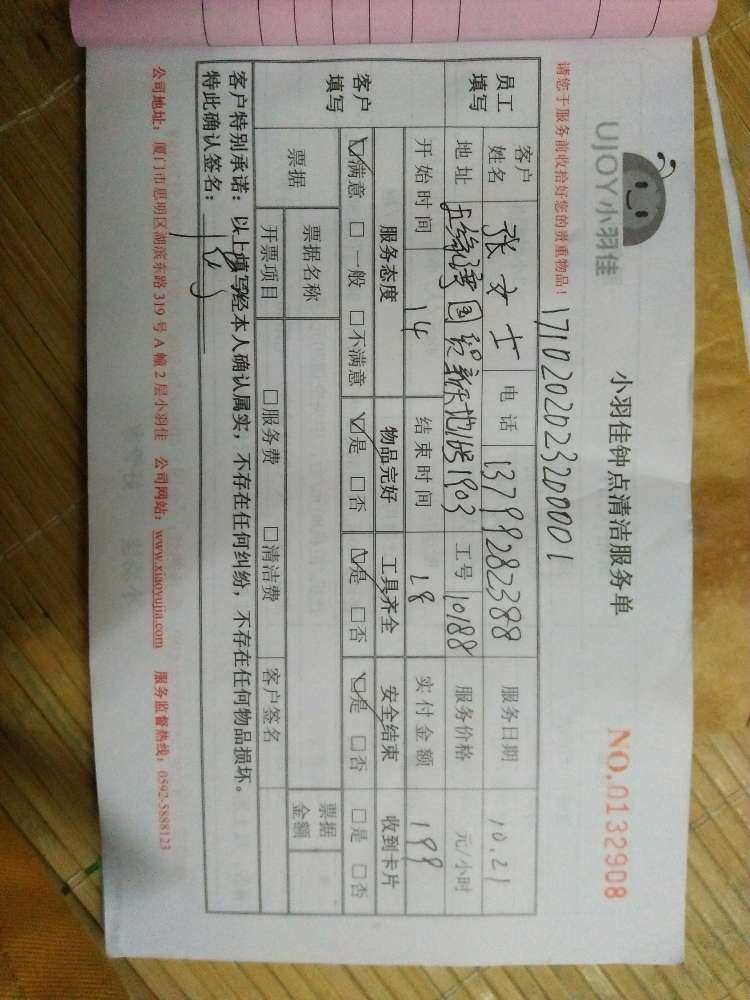 UJOY小羽佳
小羽佳钟点清洁服务单
NO.0132908
请您于服务前收拾好您的贵重物品！
1710202023200001
员工填写 客户姓名 张女士 电话 13799282388 服务日期 10.21
地址 国贸新天地 1903 工号 10188 服务价格 元/小时
开始时间 14 结束时间 18 实付金额 199
客户填写 服务态度 物品完好 工具齐全 安全结束 收到卡片
☑满意 □一般 □不满意 ☑是 □否 ☑是 □否 ☑是 □否 □是 □否
票据 票据名称 票据金额
开票项目 □服务费 □清洁费 客户签名
客户特别承诺：以上填写经本人确认属实，不存在任何纠纷，不存在任何物品损坏。
特此确认签名：
公司地址：厦门市思明区湖滨东路 319 号 A 幢 2 层小羽佳 公司网站：www.xiaoyujia.com 服务监督热线：0592-5888123